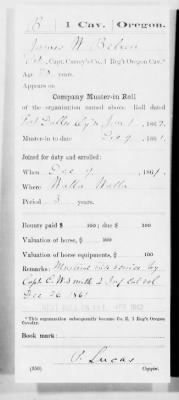 B | 1 Cav. | Oregon.
James W. 
Pvt, Capt. Currey's Co., 1 Reg't Oregon Cav.*
Age 28 years.
Appears on
Company Muster-in Roll
of the organization named above. Roll dated
Fort Dalles Ogn Jan 1, 1862.
Muster-in to date Dec 9, 1861.
Joined for duty and enrolled:
When Dec 9, 1861.
Where Walla Walla
Period 3 years.
Bounty paid $ 100; due $ 100
Valuation of horse, $ 100
Valuation of horse equipments, $ 100
Remarks: Mustered into service by
Capt. Smith 2 Inf Cal Vol
Dec 26 1861
*This organization subsequently became Co. E, 1 Reg't Oregon
Cavalry.
Book mark:
P. Lucas
(356) Copyist.